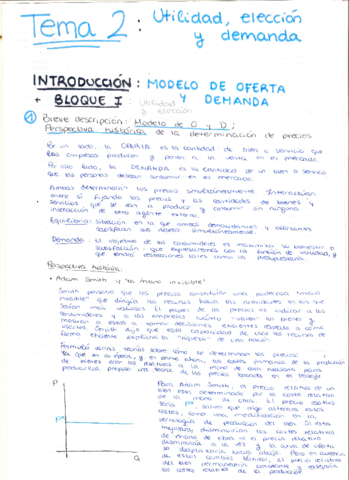 Tema 2: Utilidad, elección
y demanda
INTRODUCCIÓN: MODELO DE OFERTA
Y DEMANDA
+ BLOQUE I: Utilidad
y elección
① Breve descripción: Modelo de O y D;
Perspectiva histórica de la determinación de precios
Por un lado, la OFERTA es la cantidad de bien o servicio que
las empresas producen y ponen a la venta en el mercado.
Por otro lado, la DEMANDA es la cantidad de un bien o servicio
que las personas desean consumir en el mercado.
Ambas determinan los precios simultáneamente. Interaccionan
entre sí fijando los precios y las cantidades de bienes y
servicios que se van a producir y consumir sin ninguna
interacción de otro agente externo.
Equilibrio: Situación en la que ambos demandantes y oferentes
satisfacen sus deseos simultáneamente.
Demanda: El objetivo de los consumidores es maximizar su bienestar o
satisfacción que expresaremos con la función de utilidad, y
que tendrá restricciones tales como la presupuestaria.
Perspectiva histórica:
• Adam Smith y "la mano invisible"
Smith pensaba que los precios constituían una poderosa "mano
invisible" que dirigía los recursos hacia las actividades en las que
serían más valiosos. El papel de los precios es indicar a los
consumidores y a las empresas cuánto "valen" los bienes y
a estos a tomar decisiones eficientes respecto a cómo
usarlos. Smith dice que esta capacidad de usar los recursos de
forma eficiente explicaba la "riqueza" de una nación.
Formuló varias teorías sobre cómo se determinan los precios:
Ya que en su época, y en parte ahora, los costes primarios de la producción
de bienes eran los relativos a la mano de obra necesaria para
producirlos, propuso una teoría de los precios basada en el trabajo
P
P*
Q
Para Adam Smith, el precio relativo de un
bien está determinado por el coste relativo
de la mano de obra. El precio relativo
sería P*, salvo que algo alterara estos
costes, como una modificación en la
tecnología de producción del bien. Si esta
mejorara, disminuirían los costes relativos
de mano de obra y el precio relativo
disminuiría a la vez y la curva de oferta
se desplazaría hacia abajo. Pero en ausencia
de estos cambios técnicos, el precio relativo
del bien permanecería constante y reflejaría
los costes relativos de la producción.